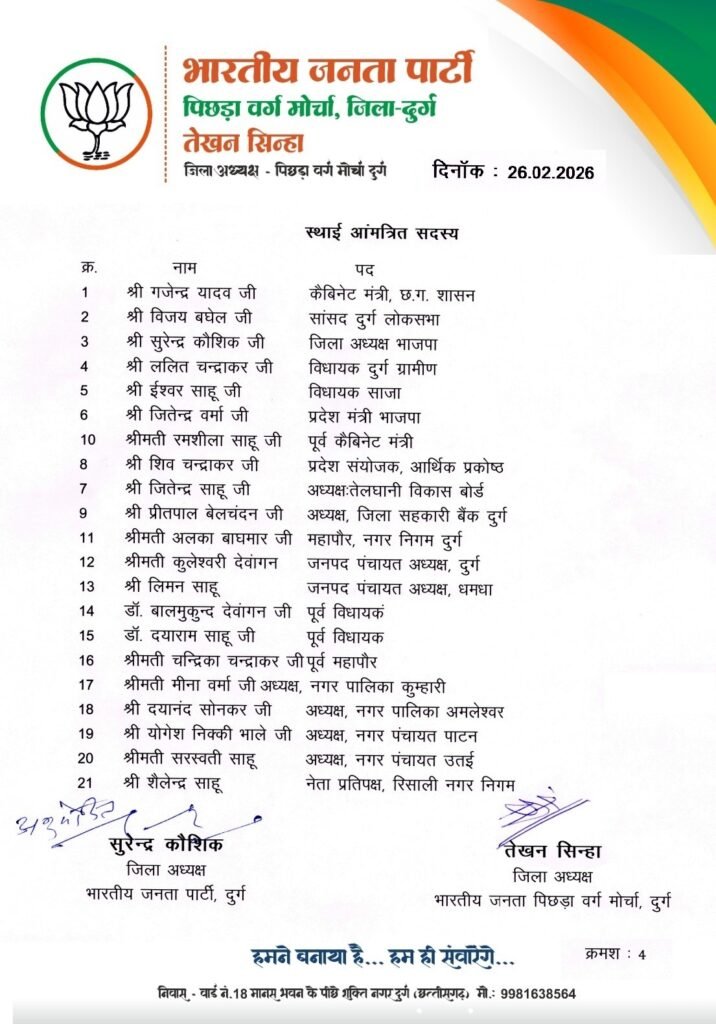 भारतीय जनता पार्टी
पिछड़ा वर्ग मोर्चा, जिला-दुर्ग
तेखन सिन्हा
जिला अध्यक्ष - पिछड़ा वर्ग मोर्चा दुर्ग
दिनॉक : 26.02.2026
स्थाई आंमत्रित सदस्य
क्र. नाम पद
1 श्री गजेन्द्र यादव जी कैबिनेट मंत्री, छ.ग. शासन
2 श्री विजय बघेल जी सांसद दुर्ग लोकसभा
3 श्री सुरेन्द्र कौशिक जी जिला अध्यक्ष भाजपा
4 श्री ललित चन्द्राकर जी विधायक दुर्ग ग्रामीण
5 श्री ईश्वर साहू जी विधायक साजा
6 श्री जितेन्द्र वर्मा जी प्रदेश मंत्री भाजपा
10 श्रीमती रमशीला साहू जी पूर्व कैबिनेट मंत्री
8 श्री शिव चन्द्राकर जी प्रदेश संयोजक, आर्थिक प्रकोष्ठ
7 श्री जितेन्द्र साहू जी अध्यक्षःतेलघानी विकास बोर्ड
9 श्री प्रीतपाल बेलचंदन जी अध्यक्ष, जिला सहकारी बैंक दुर्ग
11 श्रीमती अलका बाघमार जी महापौर, नगर निगम दुर्ग
12 श्रीमती कुलेश्वरी देवांगन जनपद पंचायत अध्यक्ष, दुर्ग
13 श्री लिमन साहू जनपद पंचायत अध्यक्ष, धमधा
14 डॉ. बालमुकुन्द देवांगन जी पूर्व विधायकं
15 डॉ. दयाराम साहू जी पूर्व विधायक
16 श्रीमती चन्द्रिका चन्द्राकर जी पूर्व महापौर
17 श्रीमती मीना वर्मा जी अध्यक्ष, नगर पालिका कुम्हारी
18 श्री दयानंद सोनकर जी अध्यक्ष, नगर पालिका अमलेश्वर
19 श्री योगेश निक्की भाले जी अध्यक्ष, नगर पंचायत पाटन
20 श्रीमती सरस्वती साहू अध्यक्ष, नगर पंचायत उतई
21 श्री शैलेन्द्र साहू नेता प्रतिपक्ष, रिसाली नगर निगम
अनुमोदित
सुरेन्द्र कौशिक
जिला अध्यक्ष
भारतीय जनता पार्टी, दुर्ग
तेखन सिन्हा
जिला अध्यक्ष
भारतीय जनता पिछड़ा वर्ग मोर्चा, दुर्ग
हमने बनाया है... हम ही संवारेंगे...
क्रमश : 4
निवास - वार्ड नं.18 मानस भवन के पीछे शक्ति नगर दुर्ग (छत्तीसगढ़) मो.: 9981638564